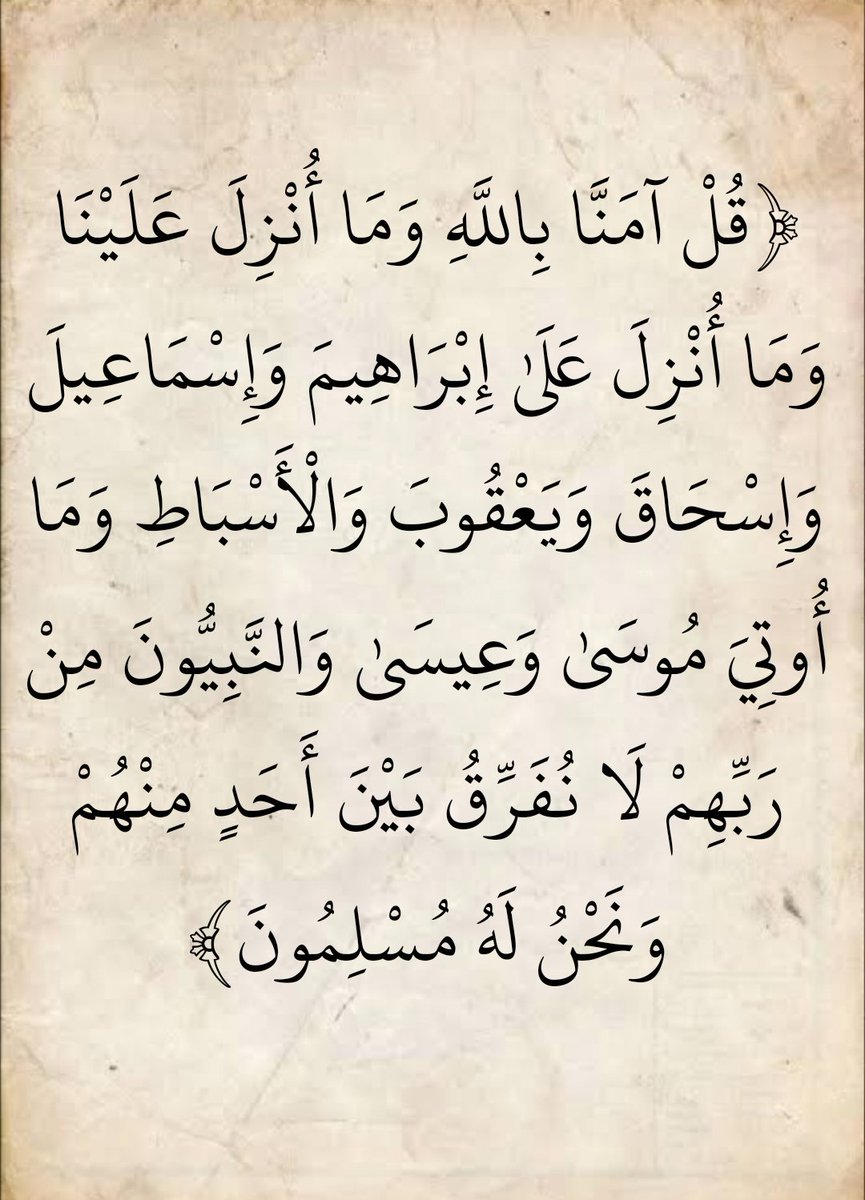 ﴿قُلْ آمَنَّا بِاللَّهِ وَمَا أُنْزِلَ عَلَيْنَا
وَمَا أُنْزِلَ عَلَىٰ إِبْرَاهِيمَ وَإِسْمَاعِيلَ
وَإِسْحَاقَ وَيَعْقُوبَ وَالْأَسْبَاطِ وَمَا
أُوتِيَ مُوسَىٰ وَعِيسَىٰ وَالنَّبِيُّونَ مِنْ
رَبِّهِمْ لَا نُفَرِّقُ بَيْنَ أَحَدٍ مِنْهُمْ
وَنَحْنُ لَهُ مُسْلِمُونَ﴾